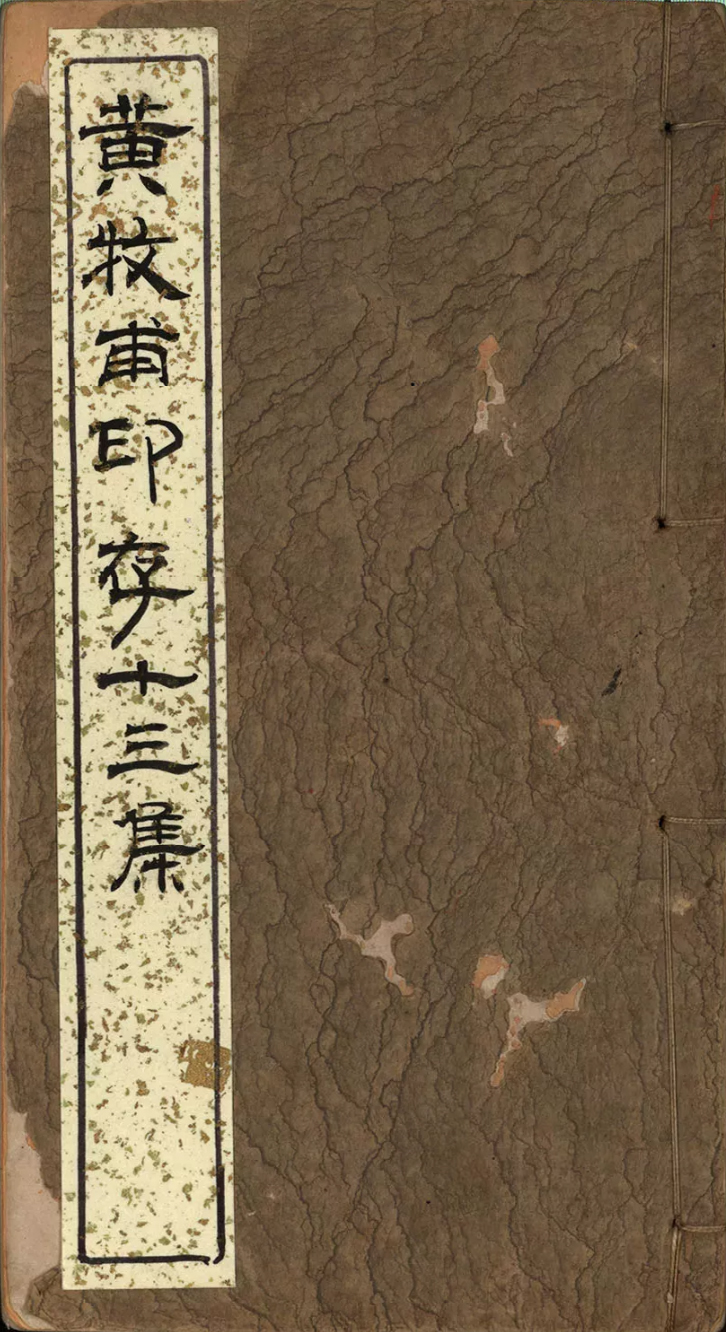 黄牧甫印存十三集